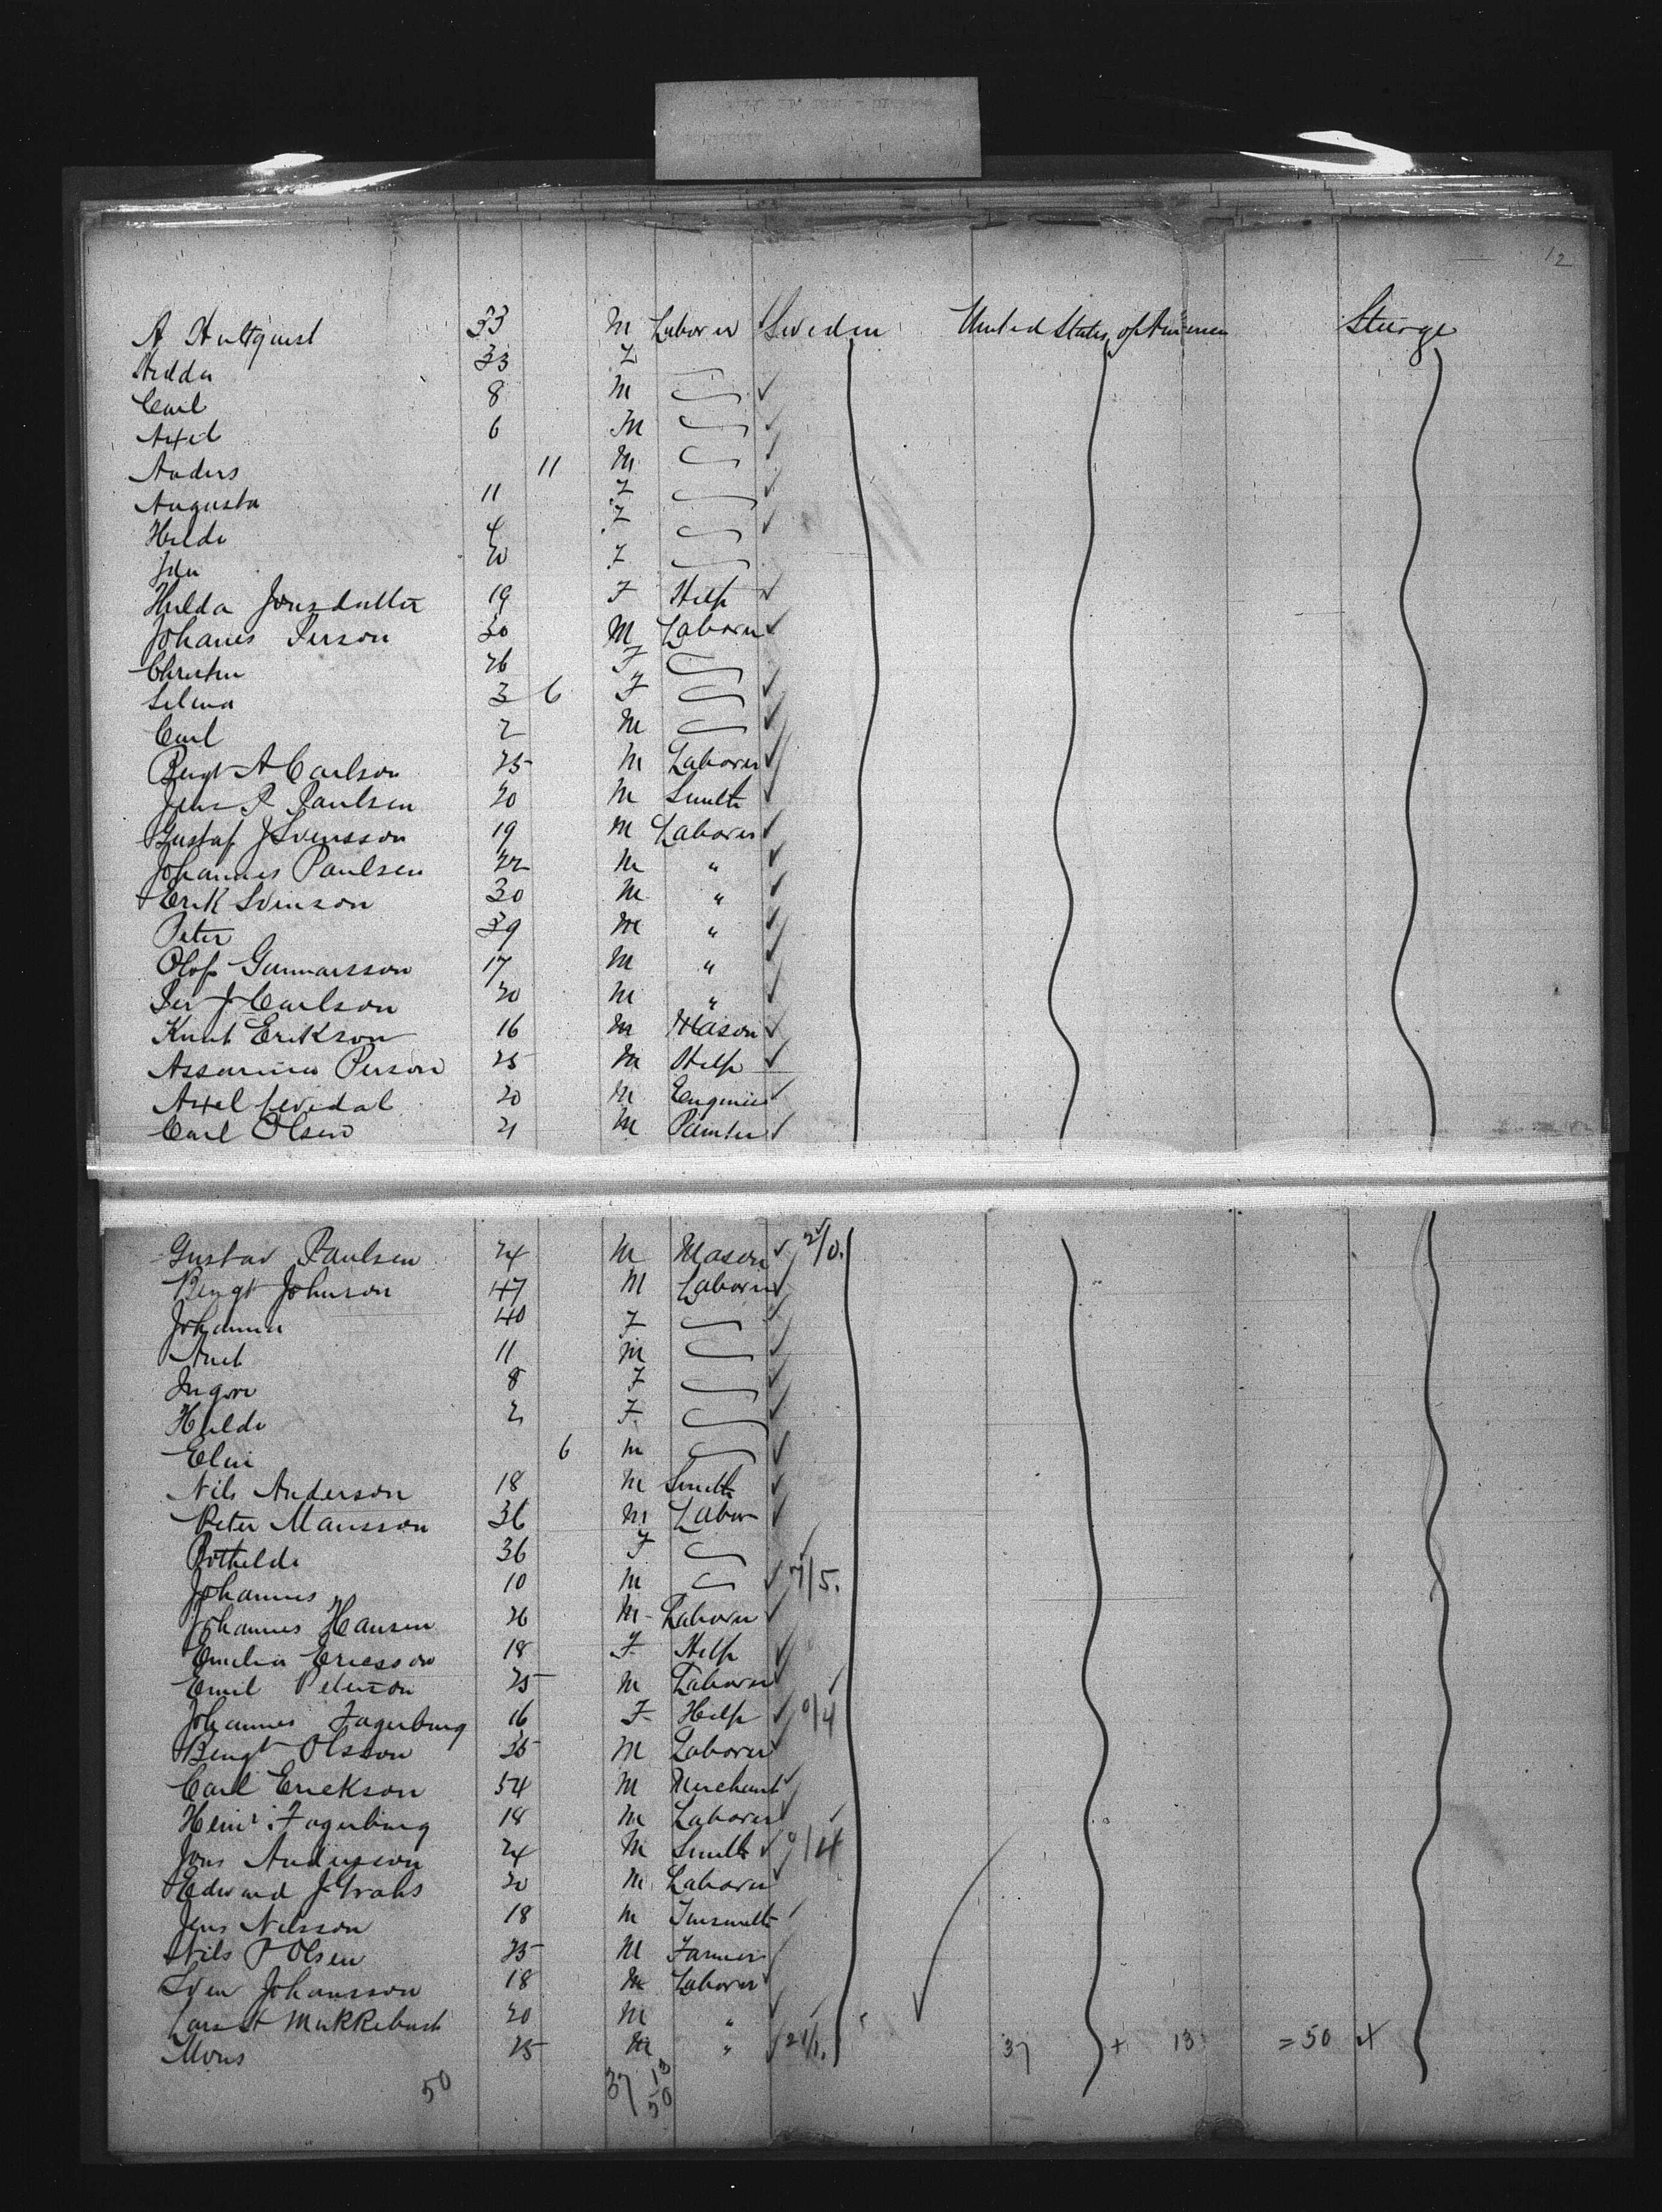 12
A Hultquist 33 M Laborer Sweden United States of America Sturge
Hedda 33 F
Carl 8 M
Axel 6 M
Anders 11 M
Augusta 11 F
Hilda 4 F
Ida 20 F
Hulda Jonsdutter 19 F Help
Johanes Person 30 M Laborer
Christin 26 F
Selma 3 6 F
Carl 2 M
Bengt A Carlson 25 M Laborer
Jens P Paulsen 20 M Smith
Gustaf J Svensson 19 M Laborer
Johannes Paulsen 22 M "
Erik Svenson 30 M "
Peter 39 M "
Olof Gunnarsson 17 M "
Per J Carlson 20 M "
Knut Erikson 16 M Mason
Assarina Person 25 M Help
Axel 20 M Engineer
Carl Olsen 21 M Painter
Gustav Paulsen 24 M Mason 2/0.
Bengt Johnson 47 M Laborer
Johanna 40 F
11 M
Ingori 8 F
Hilda 2 F
Elin 6 M
Nils Anderson 18 M Smith
Peter Mansson 36 M Labor
Bothilde 36 F
Johannes 10 M 7/5.
Johannes Hansen 26 M Laborer
Emelia Ericsson 18 F Help
Emil Peterson 25 M Laborer
Johannes Fagerburg 16 F Help 0/4
Bengt Olsson 35 M Laborer
Carl Erickson 54 M Merchant
Heinr. Fagerburg 18 M Laborer
Jons Andersson 24 M Smith 0/4
Edward J 20 M Laborer
Jens Nilsson 18 M Tinsmith
Nils P Olsen 25 M Farmer
Sven Johansson 18 M Laborer
20 M "
Mons 25 M " 21/1. 37 + 13 = 50
50 37 13
50